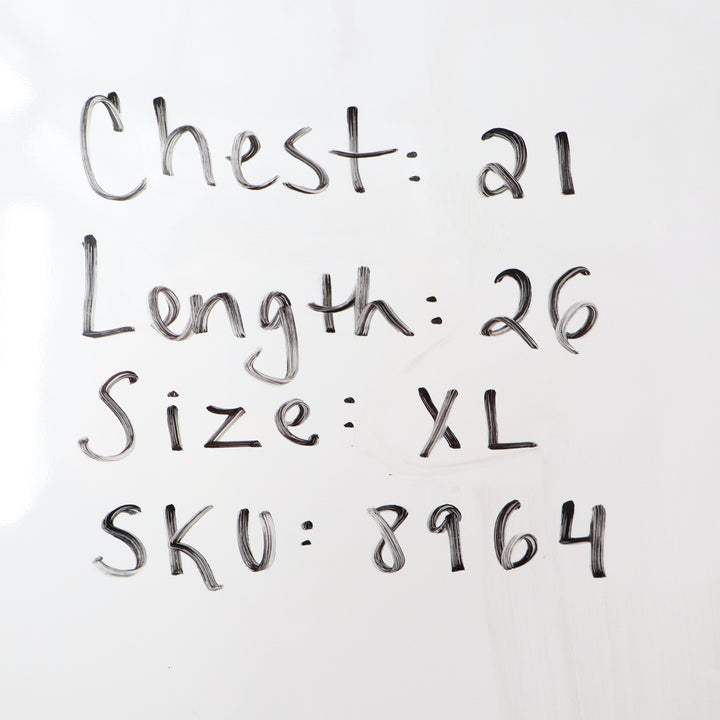 Chest: 21
Length: 26
Size: XL
SKU: 8964